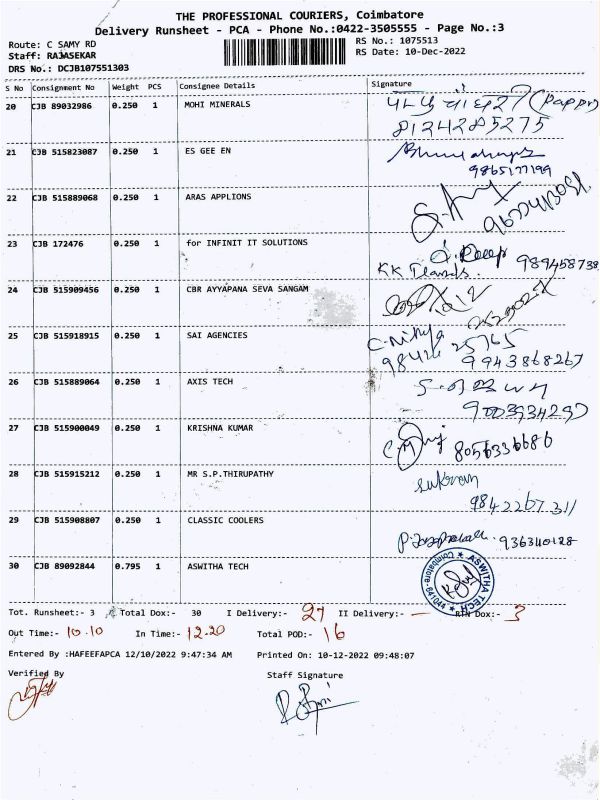 THE PROFESSIONAL COURIERS, Coimbatore
Delivery Runsheet - PCA - Phone No.:0422-3505555 - Page No.:3
Route: C SAMY RD RS No.: 1075513
Staff: RAJASEKAR RS Date: 10-Dec-2022
DRS No.: DCJB107551303
S No Consignment No Weight PCS Consignee Details Signature
20 CJB 89032986 0.250 1 MOHI MINERALS (Pappy)
8124285275
21 CJB 515823087 0.250 1 ES GEE EN
9865177199
22 CJB 515889068 0.250 1 ARAS APPLIONS
23 CJB 172476 0.250 1 for INFINIT IT SOLUTIONS
KK
989458738
24 CJB 515909456 0.250 1 CBR AYYAPANA SEVA SANGAM
25 CJB 515918915 0.250 1 SAI AGENCIES C. Nithya
98426 25765
9943868267
26 CJB 515889064 0.250 1 AXIS TECH
27 CJB 515900049 0.250 1 KRISHNA KUMAR 8056336686
28 CJB 515915212 0.250 1 MR S.P.THIRUPATHY
9842267311
29 CJB 515908807 0.250 1 CLASSIC COOLERS
936340128
30 CJB 89092844 0.795 1 ASWITHA TECH ASWITHA TECH Coimbatore-641044
Tot. Runsheet:- 3 Total Dox:- 30 I Delivery:- 27 II Delivery:- — RTN Dox:- 3
Out Time:- 10.10 In Time:- 12.20 Total POD:- 16
Entered By :HAFEEFAPCA 12/10/2022 9:47:34 AM Printed On: 10-12-2022 09:48:07
Verified By Staff Signature